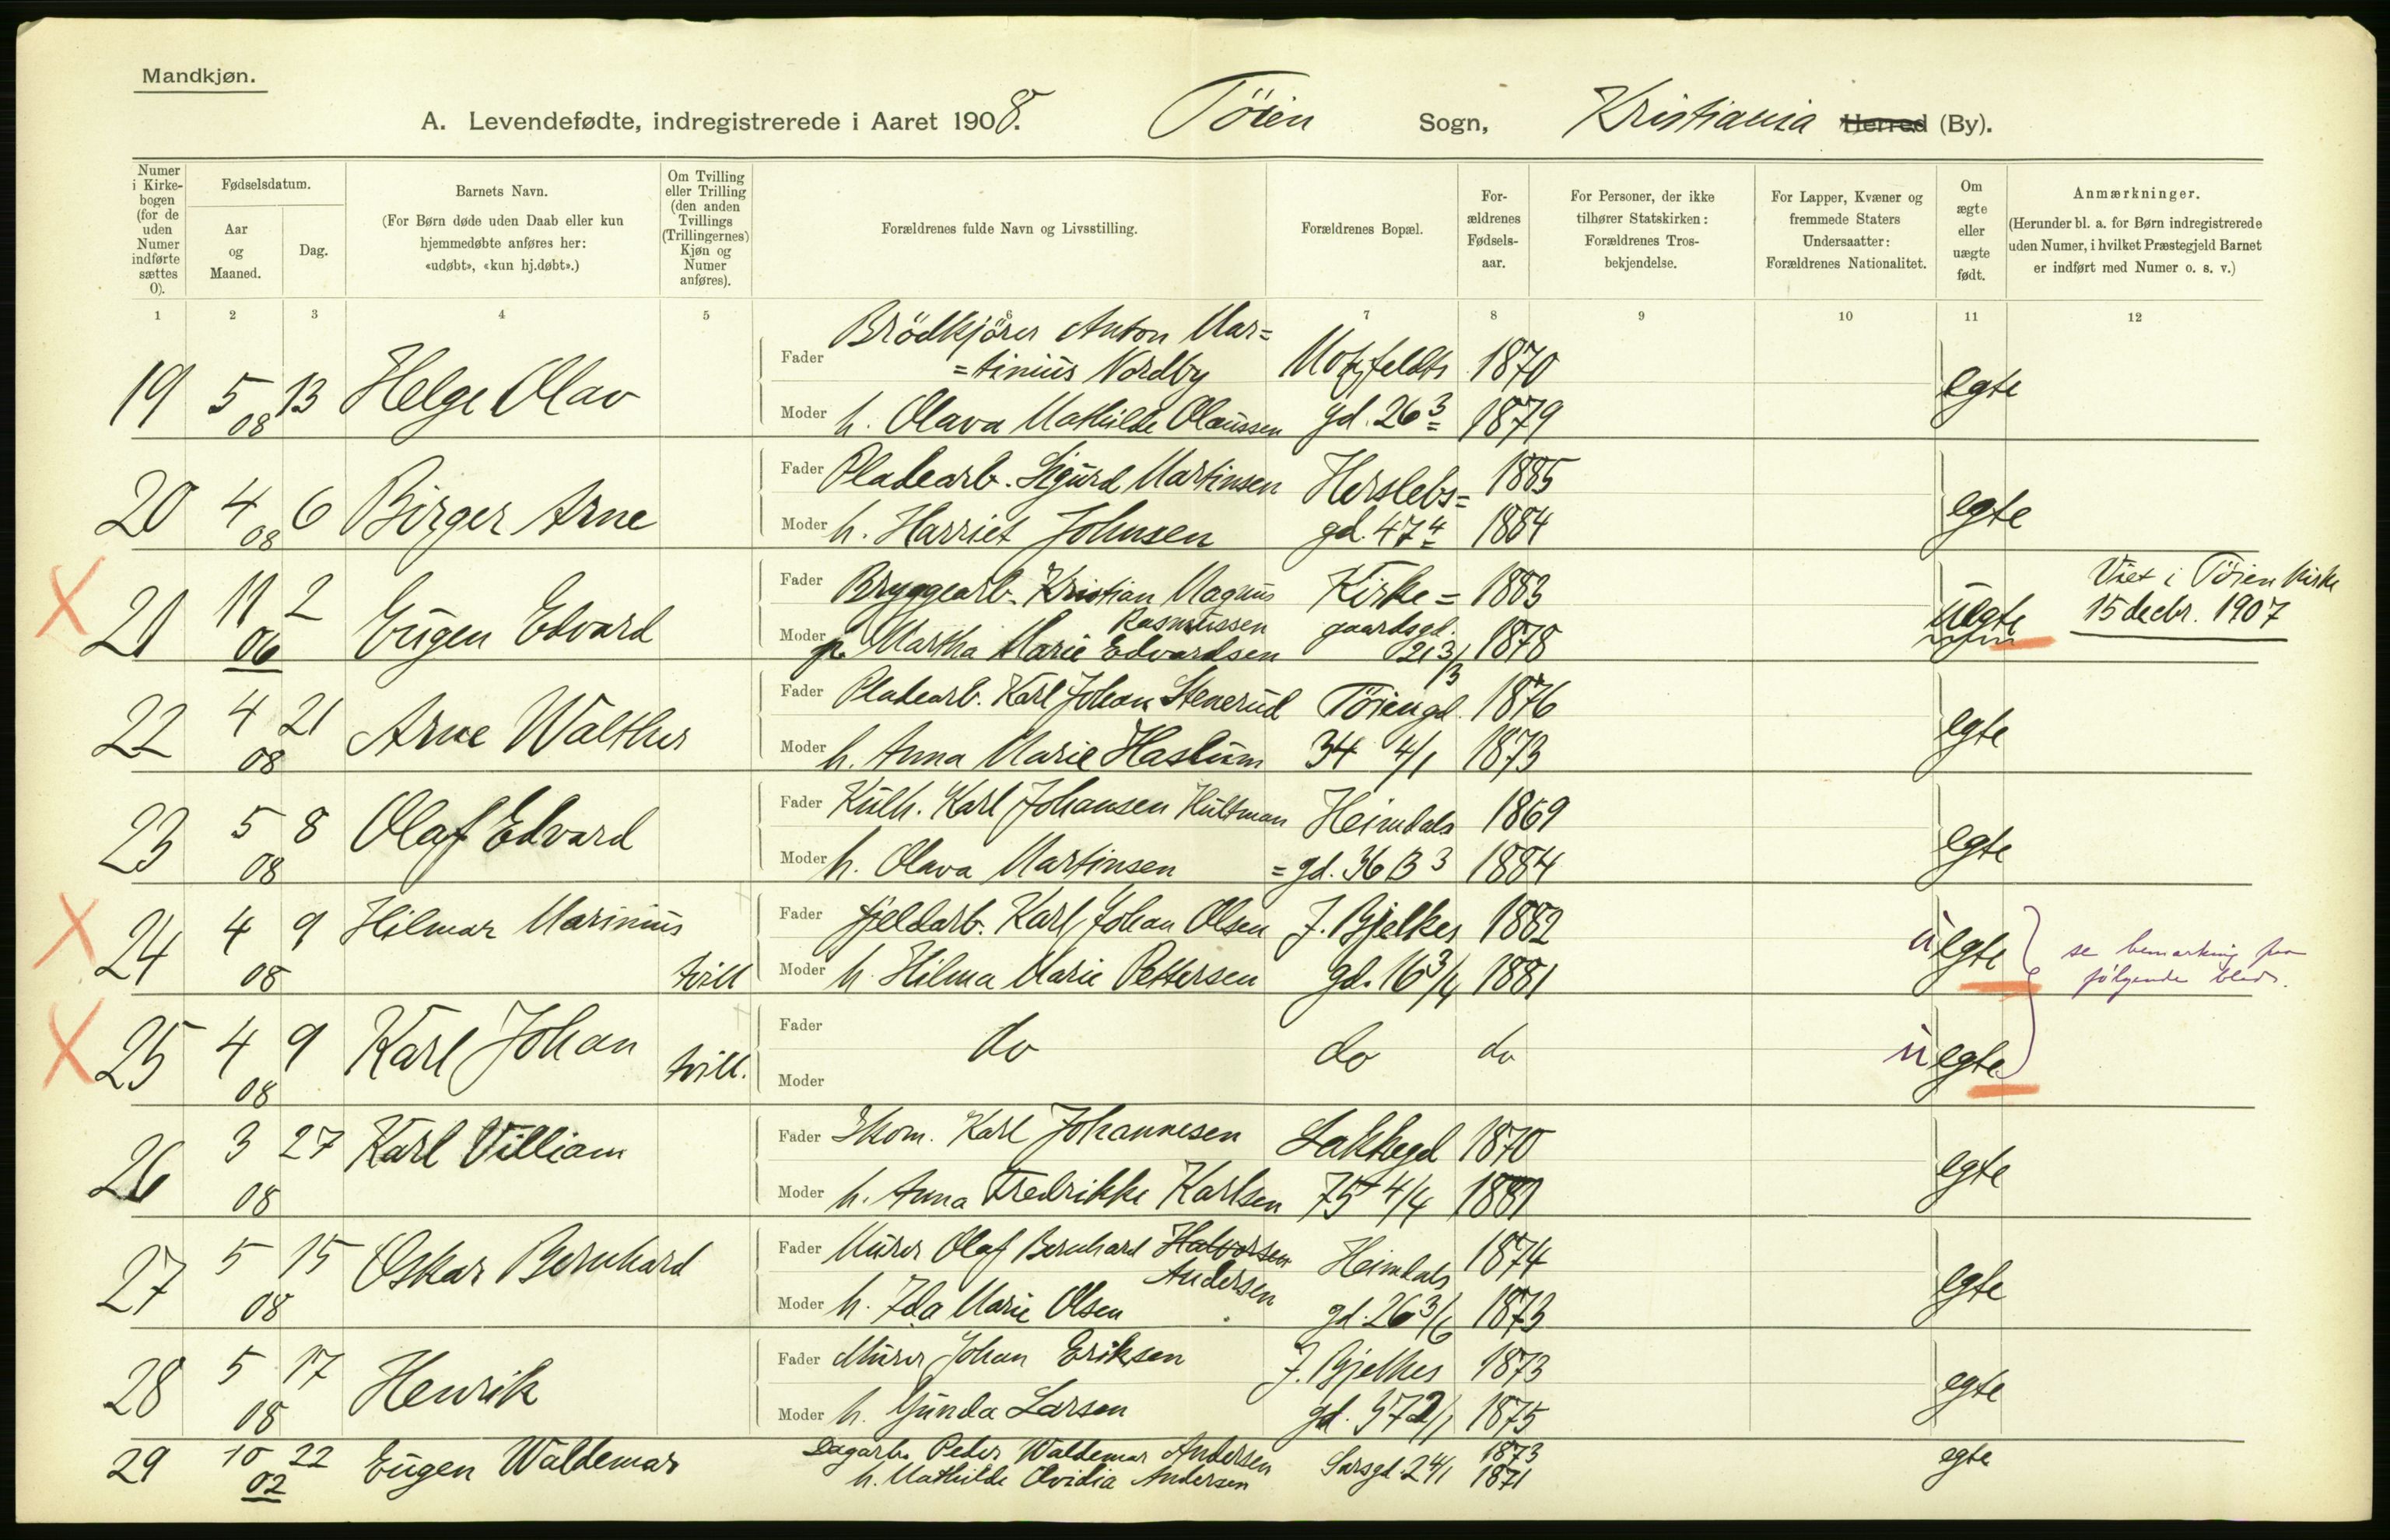 Mandkjøn.
A. Levendefødte, indregistrerede i Aaret 1908. Töien Sogn, Kristiania Herred (By).
Numer i Kirke-bogen (for de uden Numer indførte sættes 0).
Fødselsdatum.
Aar og Maaned.
Dag.
Barnets Navn.
(For Børn døde uden Daab eller kun hjemmedøbte anføres her: «udøbt», «kun hj.døbt».)
Om Tvilling eller Trilling (den anden Tvillings (Trillingernes) Kjøn og Numer anføres).
Forældrenes fulde Navn og Livsstilling.
Forældrenes Bopæl.
For-ældrenes Fødsels-aar.
For Personer, der ikke tilhører Statskirken: Forældrenes Tros-bekjendelse.
For Lapper, Kvæner og fremmede Staters Undersaatter: Forældrenes Nationalitet.
Om ægte eller uægte født.
Anmærkninger.
(Herunder bl. a. for Børn indregistrerede uden Numer, i hvilket Præstegjeld Barnet er indført med Numer o. s. v.)
1 2 3 4 5 6 7 8 9 10 11 12
19 5 08 13 Helge Olav
Fader Brödkjörer Anton Mar=
=tinius Nordby Motzfeldts 1870
Moder h. Olava Mathilde Olaussen gd. 26 3 1879 egte
20 4 08 6 Birger Arne
Fader Pladearb. Sigurd Martinsen Herslebs= 1885
Moder h. Harriet Johnsen gd. 47 4 1884 egte
X 21 11 06 2 Eugen Edvard
Fader Bryggearb. Kristian Magnus Kirke= 1883
Rasmussen gaardsgd.
Moder p. Martha Marie Edvardsen 21 3/3 1878 uegte
Viet i Töien Kirke
15 decbr. 1907
22 4 08 21 Arne Walther
Fader Pladearb. Karl Johan Stenerud Töiengd. 1876
Moder h. Anna Marie Haslum 34 4/1 1873 egte
23 5 08 8 Olaf Edvard
Fader Kulh. Karl Johansen Hultman Heimdals 1869
Moder h. Olava Martinsen =gd. 36 B 3 1884 egte
X 24 4 08 9 Hilmar Marinius tvill
Fader Fjeldarb. Karl Johan Olsen J. Bjelkes 1882
Moder h. Hilma Marie Pettersen gd. 16 3/4 1881 uegte
se bemærkning paa
følgende blad.
X 25 4 08 9 Karl Johan tvill.
Fader
do do do
Moder
uegte
26 3 08 27 Karl Villiam
Fader Skom. Karl Johannesen Lakkegd 1870
Moder h. Anna Fredrikke Karlsen 75 4/4 1881 egte
27 5 08 15 Oskar Bernhard
Fader Murer Olaf Bernhard Halvorsen Heimdals 1874
Andersen
Moder h. Ida Marie Olsen gd. 26 3/6 1873 egte
28 5 08 17 Henrik
Fader Murer Johan Eriksen J. Bjelkes 1873
Moder h. Gunda Larsen gd. 57 2/1 1875 egte
29 10 02 22 Eugen Waldemar
Dagarb. Peder Waldemar Andersen Sarsgd. 2 4/1 1873
h. Mathilde Ovidia Andersen 1871 egte